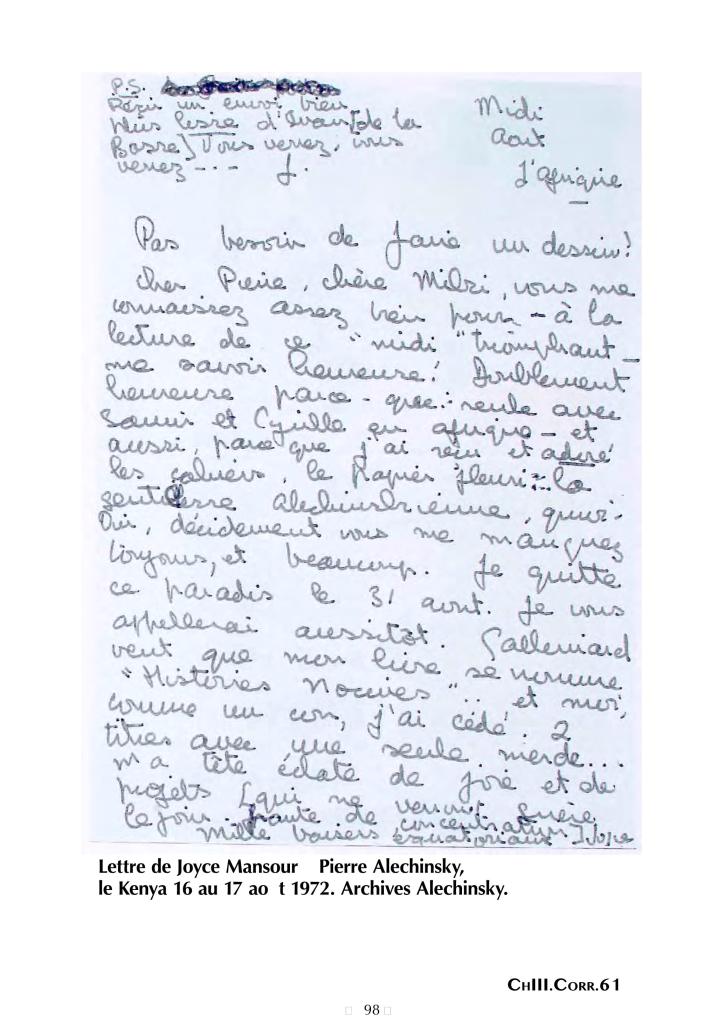 P.S.
Reçu un envoi bien
plus leste d'Ivan [de la
Basse] Vous verrez, vous
verrez --- J.
Midi
Aout
J'Afrique
Pas besoin de faire un dessin!
Cher Pierre, chère Micky, vous me
connaissez assez bien pour - à la
lecture de ce "midi" triomphant -
me savoir heureuse! Doublement
heureuse parce-que: seule avec
Samir et Cyrille en afrique - et
aussi, parce que j'ai reçu et adoré
les cahiers, le papier fleuri: la
gentillesse alechinskienne, quoi.
Oui, décidement vous me manquez
toujours, et beaucoup. Je quitte
ce paradis le 31 aout. Je vous
appellerai aussitôt. Gallimard
veut que mon livre se nomme
"Histoires Nocives" .. et moi,
comme un con, j'ai cédé. 2
titres avec une seule merde...
ma tête éclate de joie et de
projets [qui ne verront guère
le jour faute de concentration]
Mille baisers équatoriaux Joyce
Lettre de Joyce Mansour Pierre Alechinsky,
le Kenya 16 au 17 ao t 1972. Archives Alechinsky.
CHIII.CORR.61
98